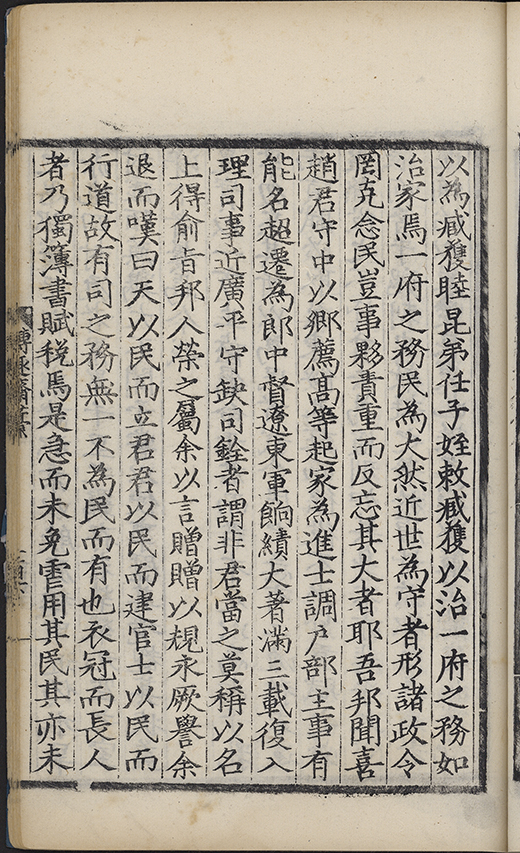 以為臧獲睦昆弟任子姪敕臧獲以治一府之務如
治家焉一府之務民為大然近世為守者形諸政令
罔克念民豈事夥責重而反忘其大者耶吾邦聞喜
趙君守中以鄉薦高等起家為進士調户部主事有
能名超遷為郎中督遼東軍餉績大著滿三載復入
理司事近廣平守缺司銓者謂非君當之莫稱以名
上得俞旨邦人榮之屬余以言贈贈以規永厥譽余
退而嘆曰天以民而立君君以民而建官士以民而
行道故有司之務無一不為民而有也衣冠而長人
者乃獨簿書賦稅焉是急而未免虐用其民其亦未